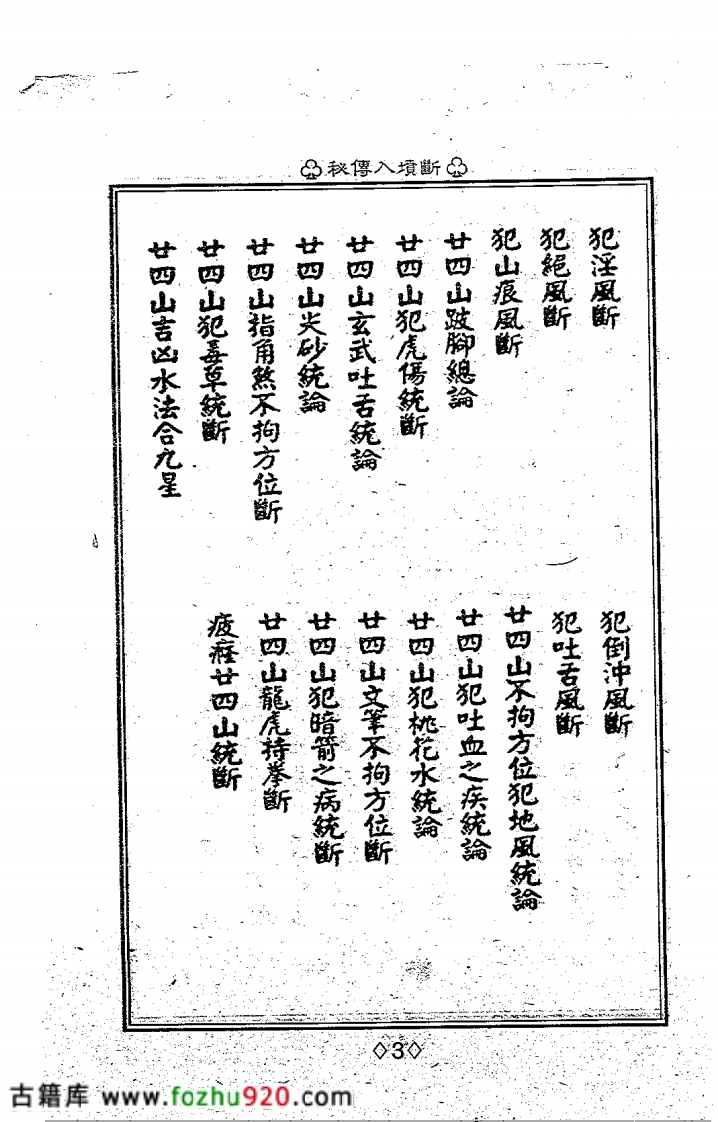 秘傳入墳斷
犯淫風斷
犯倒沖風斷
犯絕風斷
犯吐舌風斷
犯山痕風斷
廿四山不拘方位犯地風統論
廿四山跛腳總論
廿四山犯吐血之疾統論
廿四山犯虎傷統斷
廿四山犯桃花水統論
廿四山玄武吐舌統論
廿四山文筆不拘方位斷
廿四山尖砂統論
廿四山犯暗箭之病統斷
廿四山指角煞不拘方位斷
廿四山龍虎持拳斷
廿四山犯毒草統斷
疲廿四山統斷
廿四山吉凶水法合九星
3
古籍库 www.fozhu920.com